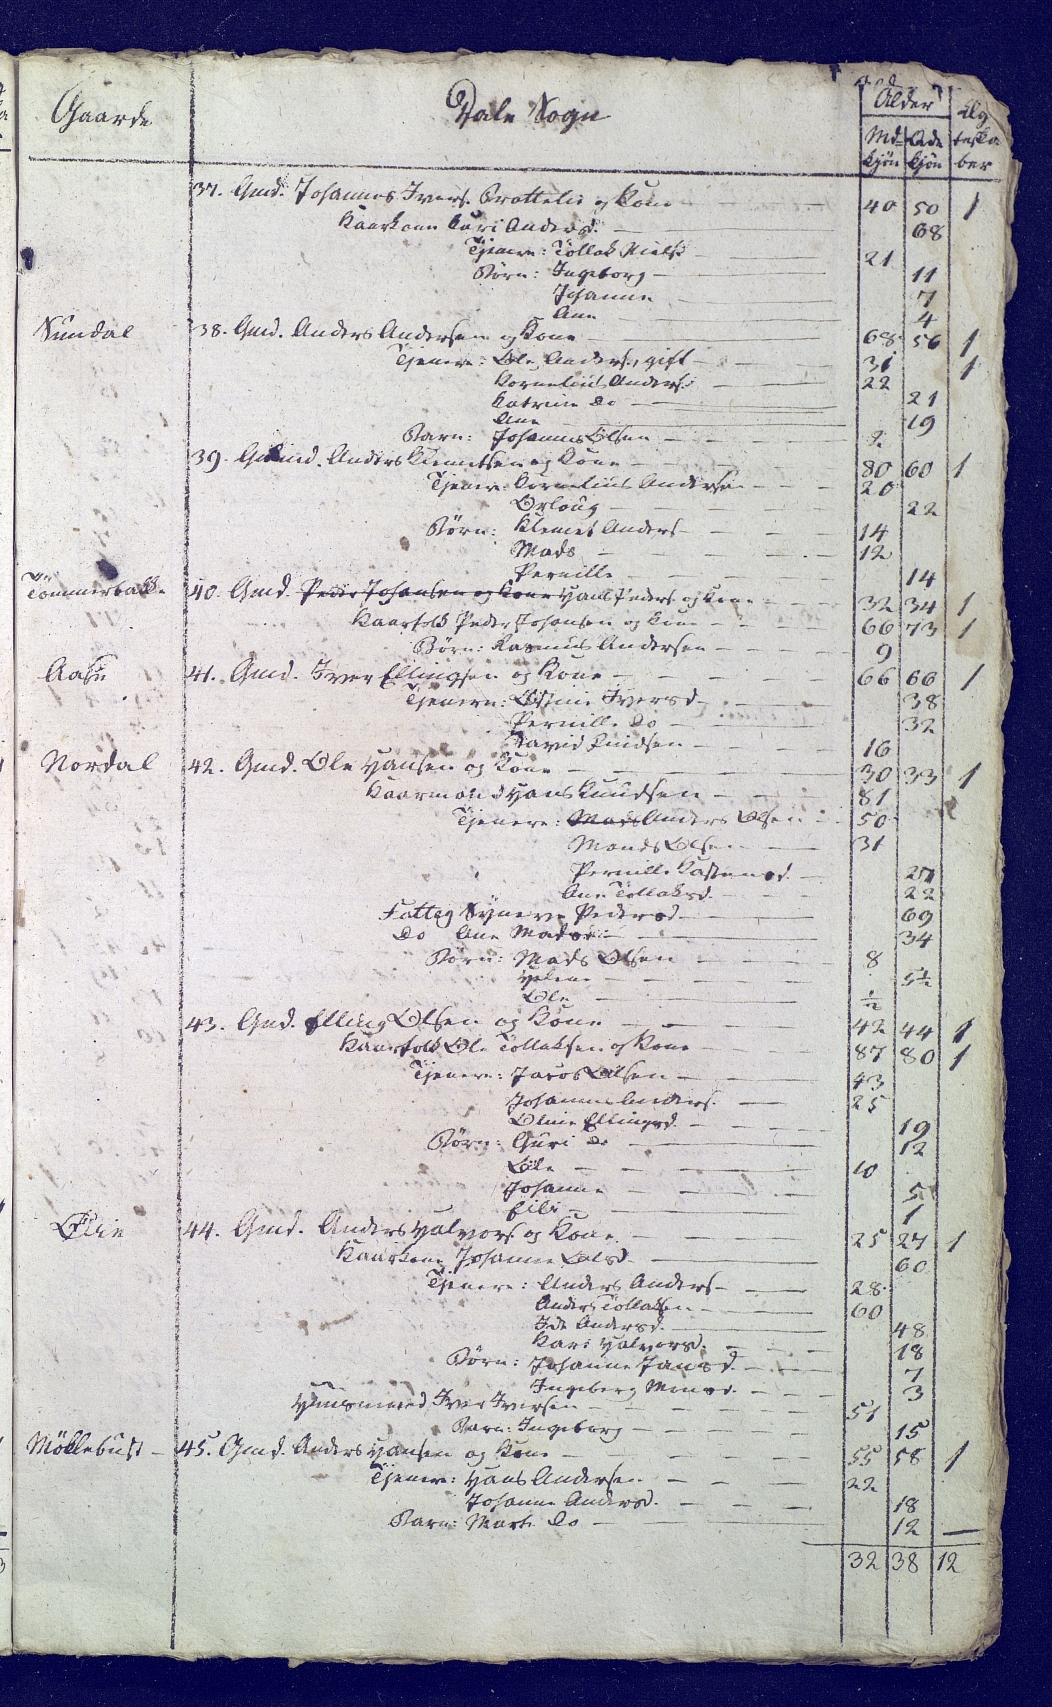 Gaarde Dale Sogn Alder Ægteskaber
Mdkjøn Qdekjøn
37. Gmd. Johannes Ivers. Brattelie og Kone 40 50 1
Kaarkone Kari Andersd. 68
Tjener: Tollak Nielss 21
Børn: Ingeborg 11
Johanne 7
Ane 4
Sundal 38. Gmd. Anders Andersen og Kone 68 56 1
Tjenere: Ole Anders., gift 31 1
Kornelius Anders. 22
Katrine Do 21
Ane 19
Barn: Johannes Olsen 2
39. Gmd. Anders Klemetsen og Kone 80 60 1
Tjener: Cornelius Andersen 20
Orloug 22
Børn: Klemet Anders 14
Mads 12
Pernille 14
Tømmerbakke 40. Gmd. Peder Johansen og Kone Hans Peders. og Kone 32 34 1
Kaarfolk Peder Johansen og Kone 66 73 1
Børn: Rasmus Andersen 9
Aase 41. Gmd. Iver Ellingsen og Kone 66 66 1
Tjenere: Oline Iversd 38
Pernille Do 32
David Knudsen 16
Nordal 42. Gmd. Ole Hansen og Kone 30 33 1
Kaarmand Hans Knudsen 81
Tjenere: Mads Anders Olsen 50
Monds Olsen 31
Pernille Rastensd. 27
Ane Tollaksd. 22
Fattig Synneve Pedersd 69
Do Ane Madsd: 34
Børn: Mads Olsen 8
Helene 5½
Ole ½
43. Gmd. Elling Olsen og Kone 42 44 1
Kaarfolk Ole Tollaksen og Kone 87 80 1
Tjenere: Jacob Olsen 43
Johannes Anders. 25
Oline Ellingsd. 19
Børn: Guri Do 12
Ole 10
Johanne 5
Eili 1
Øfrie 44. Gmd. Anders Halvors og Kone 25 27 1
Kaarkone Johanne Olsd 60
Tjenere: Anders Anders 28
Anders Tollaksen 60
Ide Andersd. 48
Kari Halvorsd. 18
Børn: Johanne Jansd. 7
Ingeborg Monsd. 3
Huusmand Iver Iversen 51
Barn: Ingeborg 15
Møklebust 45. Gmd. Anders Hansen og Kone 55 58 1
Tjener: Hans Andersen 22
Johanne Andersd. 18
Barn: Marte Do 12
32 38 12